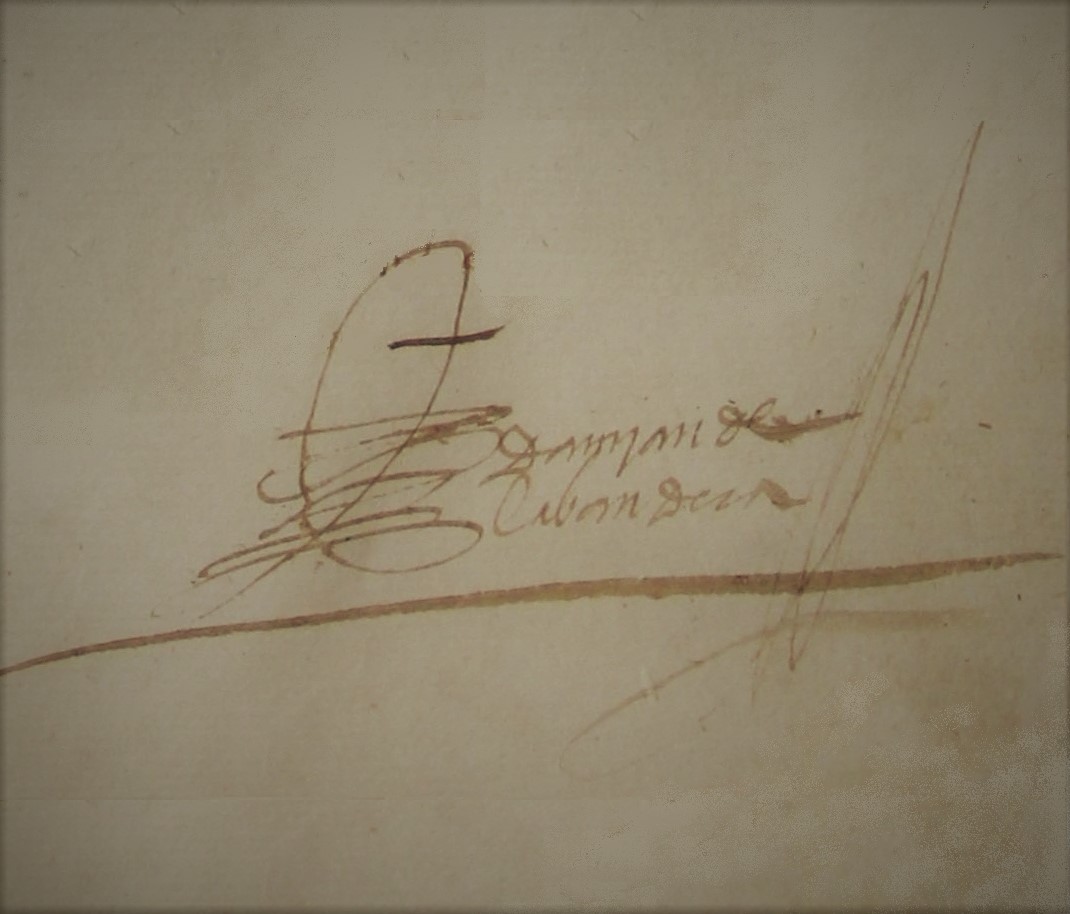 Damyan de
la bandera